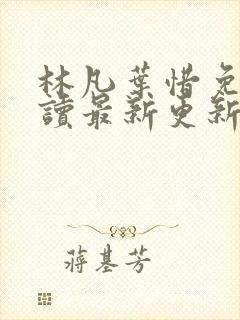 林凡葉惜免
讀最新更新
蔣基芳